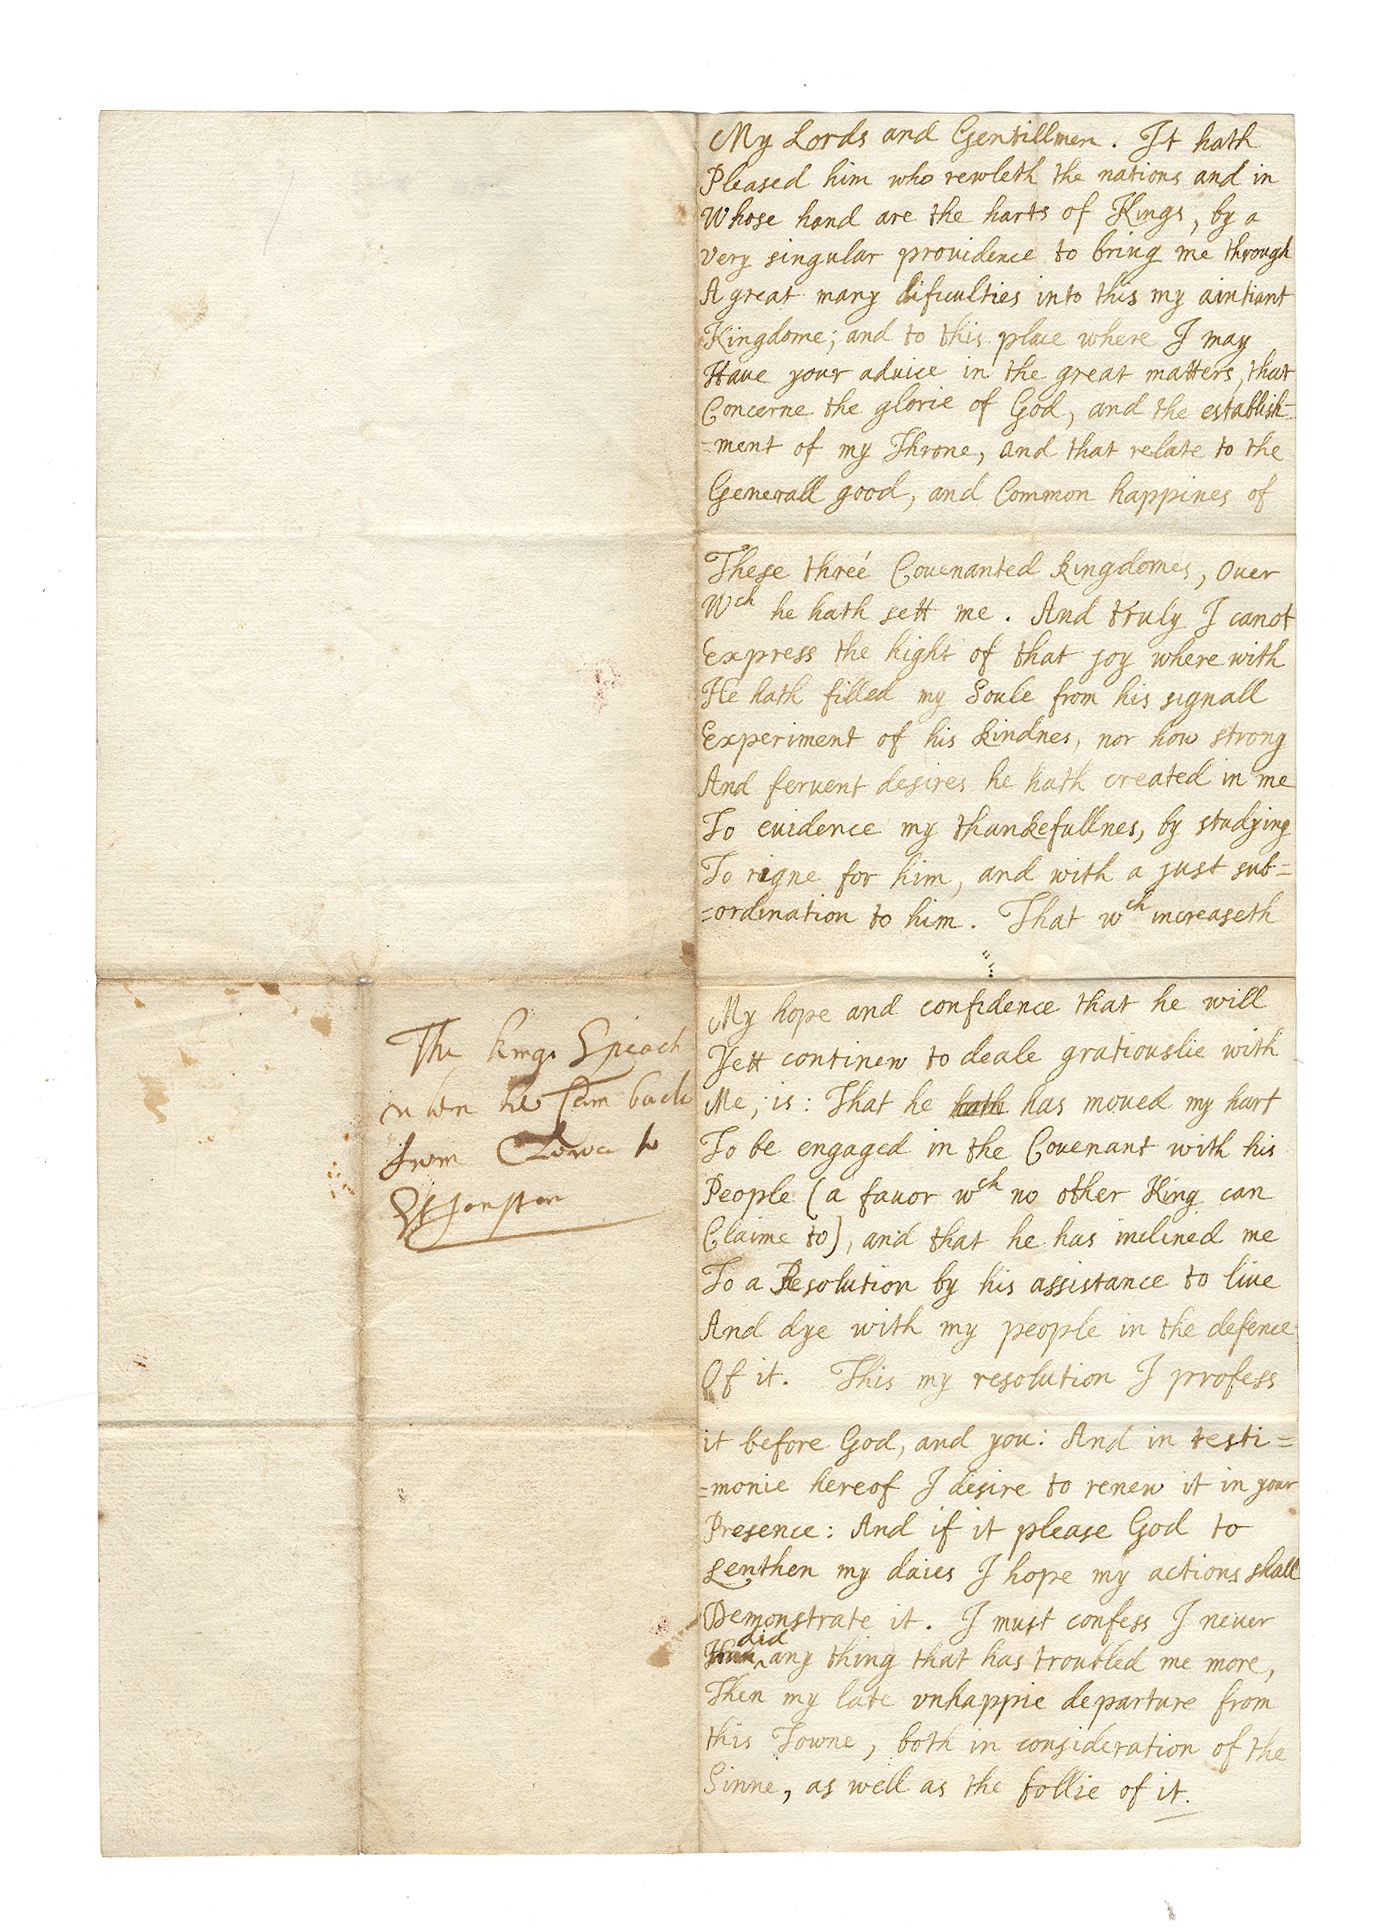 The kings Speach
when he Cam back
from Clova to
St Jonston
My Lords and Gentillmen. It hath
Pleased him who rewleth the nations and in
Whose hand are the harts of Kings, by a
very singular prouidence to bring me through
A great many dificulties into this my aintiant
Kingdome; and to this place where I may
Haue your aduice in the great matters, that
Concerne the glorie of God, and the establish=
=ment of my Throne, and that relate to the
Generall good, and Common happines of
These three Couenanted kingdomes, Ouer
Wch he hath sett me. And truly I canot
Express the hight of that joy where with
He hath filled my Soule from his signall
Experiment of his kindnes, nor how strong
And feruent desires he hath created in me
To euidence my thankefullnes, by studying
To rigne for him, and with a just sub=
=ordination to him. That wch increaseth
My hope and confidence that he will
Yett continew to deale gratiouslie with
Me, is: That he hath has moued my hart
To be engaged in the Couenant with his
People (a fauor wch no other King can
Claime to), and that he has inclined me
To a Resolution by his assistance to liue
And dye with my people in the defence
Of it. This my resolution I profess
it before God, and you: And in testi=
=monie hereof I desire to renew it in your
Presence: And if it please God to
Lenthen my daies I hope my actions shall
Demonstrate it. I must confess I neuer
did any thing that has troubled me more,
Then my late vnhappie departure from
this Towne, both in consideration of the
Sinne, as well as the follie of it.